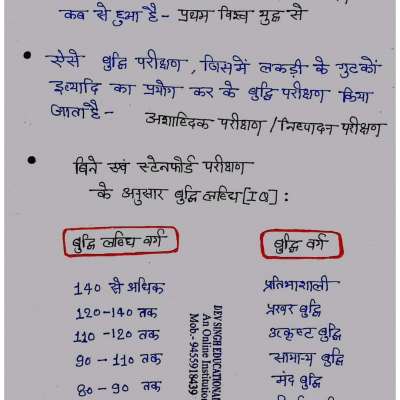 कब से हुआ है - प्रथम विश्व युद्ध से
• ऐसे बुद्धि परीक्षण, जिसमें लकड़ी के गुटकों
इत्यादि का प्रयोग कर के बुद्धि परीक्षण किया
जाता है -
अशाब्दिक परीक्षण / निष्पादन परीक्षण
• बिने एवं स्टेनफोर्ड परीक्षण
के अनुसार बुद्धि लब्धि [IQ] :
बुद्धि लब्धि वर्ग बुद्धि वर्ग
140 से अधिक प्रतिभाशाली
120-140 तक प्रखर बुद्धि
110 -120 तक उत्कृष्ट बुद्धि
90 - 110 तक सामान्य बुद्धि
80 - 90 तक मंद बुद्धि
DEV SINGH EDUCATIONAL
An Online Institution
Mob.- 9455918439